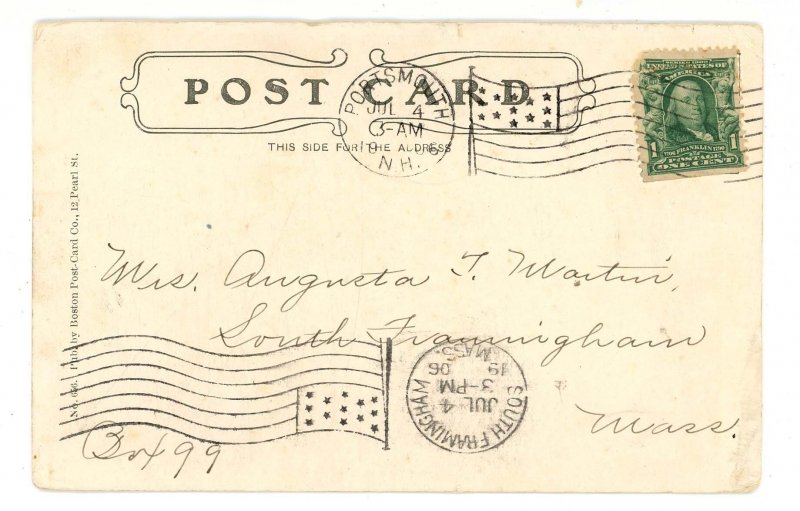 POST CARD
THIS SIDE FOR THE ADDRESS
PORTSMOUTH
JUL 4
3-AM
N.H.
SERIES 1902
UNITED STATES OF
AMERICA
1706 FRANKLIN 1790
1 POSTAGE 1
ONE CENT
No. 656. Pub. by Boston Post-Card Co., 12 Pearl St.
Mrs. Augusta T. Martin,
South Framingham
Mass.
Box 99
SOUTH FRAMINGHAM
JUL 4
3-PM
19 06
MASS.